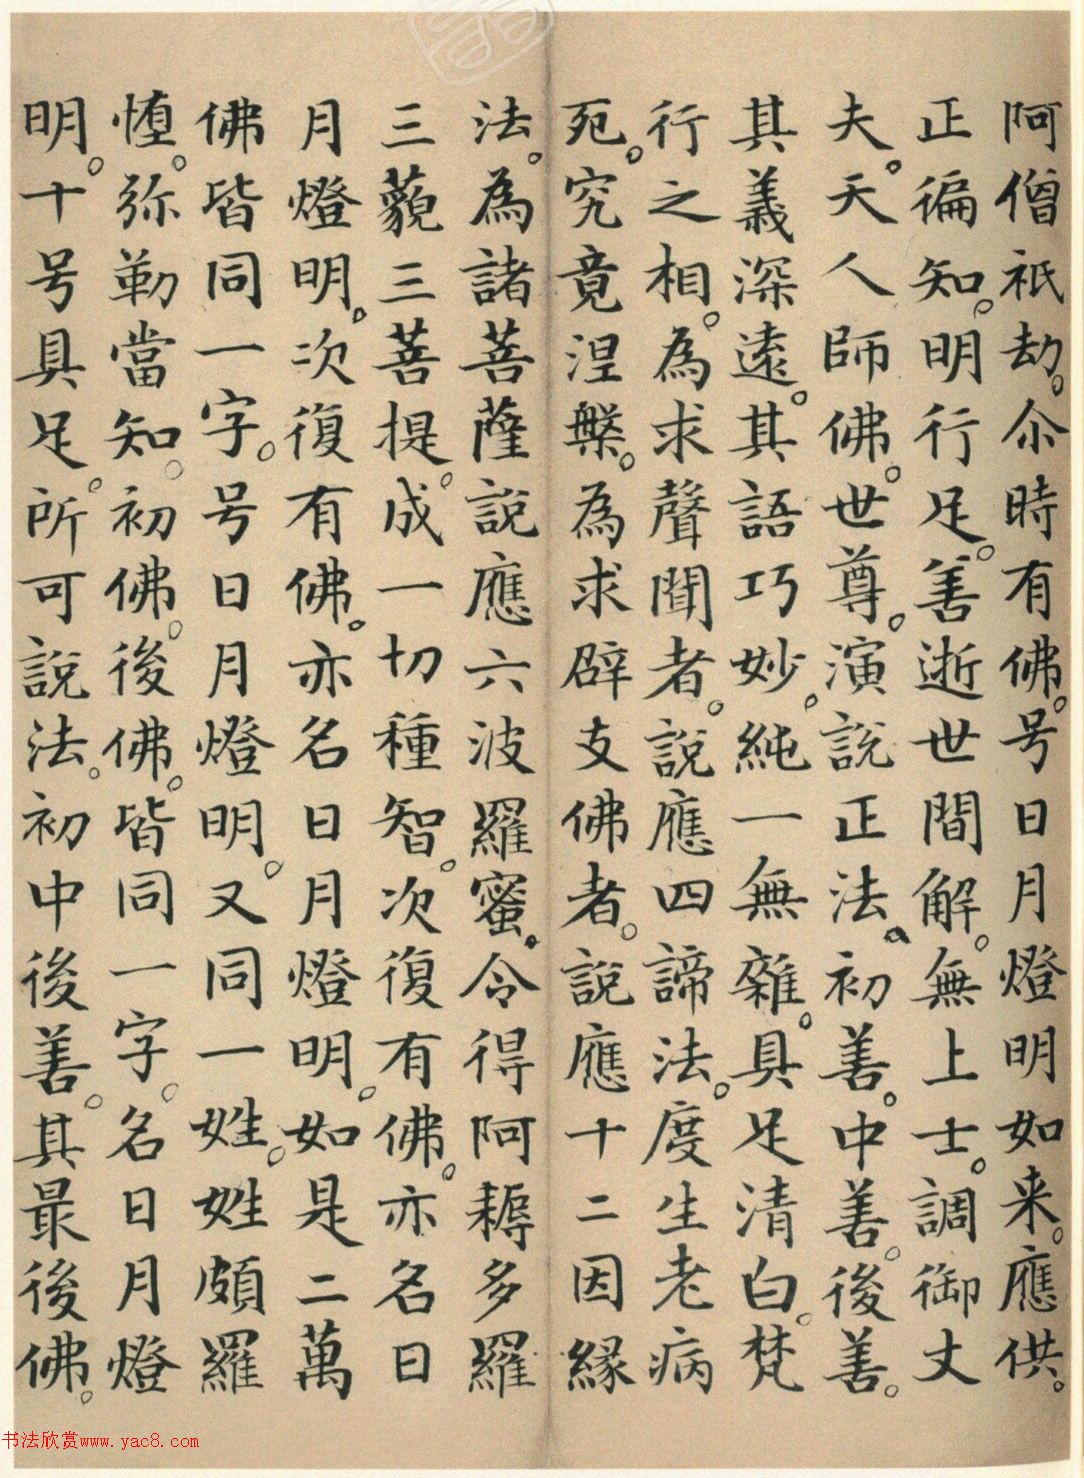 阿僧祇劫。尒時有佛。号日月燈明如来。應供。
正徧知。明行足。善逝世間解。無上士。調御丈
夫。天人師佛。世尊。演說正法。初善。中善。後善。
其義深遠。其語巧妙。純一無雜。具足清白。梵
行之相。為求聲聞者。說應四諦法。度生老病
死。究竟涅槃。為求辟支佛者。說應十二因緣
法。為諸菩薩說應六波羅蜜。令得阿耨多羅
三藐三菩提。成一切種智。次復有佛。亦名日
月燈明。次復有佛。亦名日月燈明。如是二萬
佛皆同一字。号日月燈明。又同一姓。姓頗羅
墮。弥勒當知。初佛。後佛。皆同一字。名日月燈
明。十号具足。所可說法。初中後善。其最後佛。
书法欣赏www.yac8.com